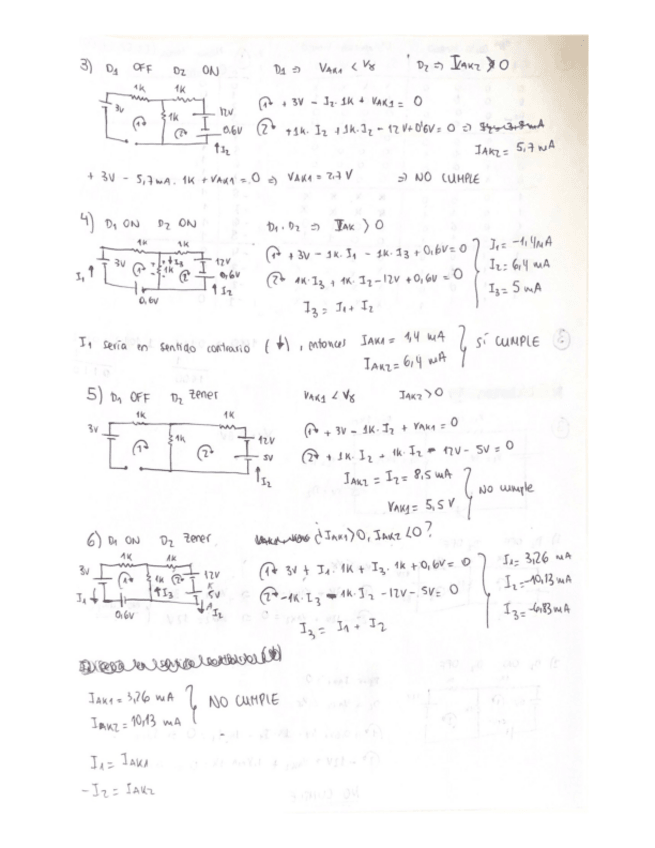 3) D1 OFF D2 ON D1 ⇒ VAK1 < Vγ D2 ⇒ IAK2 > 0
1K 1K
3V 1K 12V
1 2 0,6V
I2
1 + 3V - I2·1K + VAK1 = 0
2 +1K·I2 + 1K·I2 - 12V + 0'6V = 0 ⇒
IAK2 = 5,7 mA
+ 3V - 5,7mA·1K + VAK1 = 0 ⇒ VAK1 = 2.7 V ⇒ NO CUMPLE
4) D1 ON D2 ON D1·D2 ⇒ IAK > 0
1K 1K
3V 1 I3 1K 2 12V
I1 0,6V
0,6V I2
1 + 3V - 1K·I1 - 1K·I3 + 0,6V = 0
2 1K·I3 + 1K·I2 - 12V + 0,6V = 0
I3 = I1 + I2
I1 = -1,4mA
I2 = 6,4 mA
I3 = 5 mA
I1 sería en sentido contrario (↓), entonces IAK1 = 1,4 mA
IAK2 = 6,4 mA
SÍ CUMPLE
5) D1 OFF D2 zener VAK1 < Vγ IAK2 > 0
1K 1K
3V 1 1K 2 12V
5V
I2
1 + 3V - 1K·I2 + VAK1 = 0
2 + 1K·I2 + 1K·I2 - 12V - 5V = 0
IAK2 = I2 = 8,5 mA
VAK1 = 5,5 V
NO cumple
6) D1 ON D2 zener. ¿IAK1 > 0, IAK2 < 0?
1K 1K
3V 1 1K 2 12V
I1 I3 5V
0,6V I2
1 3V + I1·1K + I3·1K + 0,6V = 0
2 -1K·I3 - 1K·I2 - 12V - 5V = 0
I3 = I1 + I2
I1 = 3,26 mA
I2 = -10,13 mA
I3 = -6,83 mA
IAK1 = 3,26 mA
IAK2 = 10,13 mA
NO CUMPLE
I1 = IAK1
-I2 = IAK2